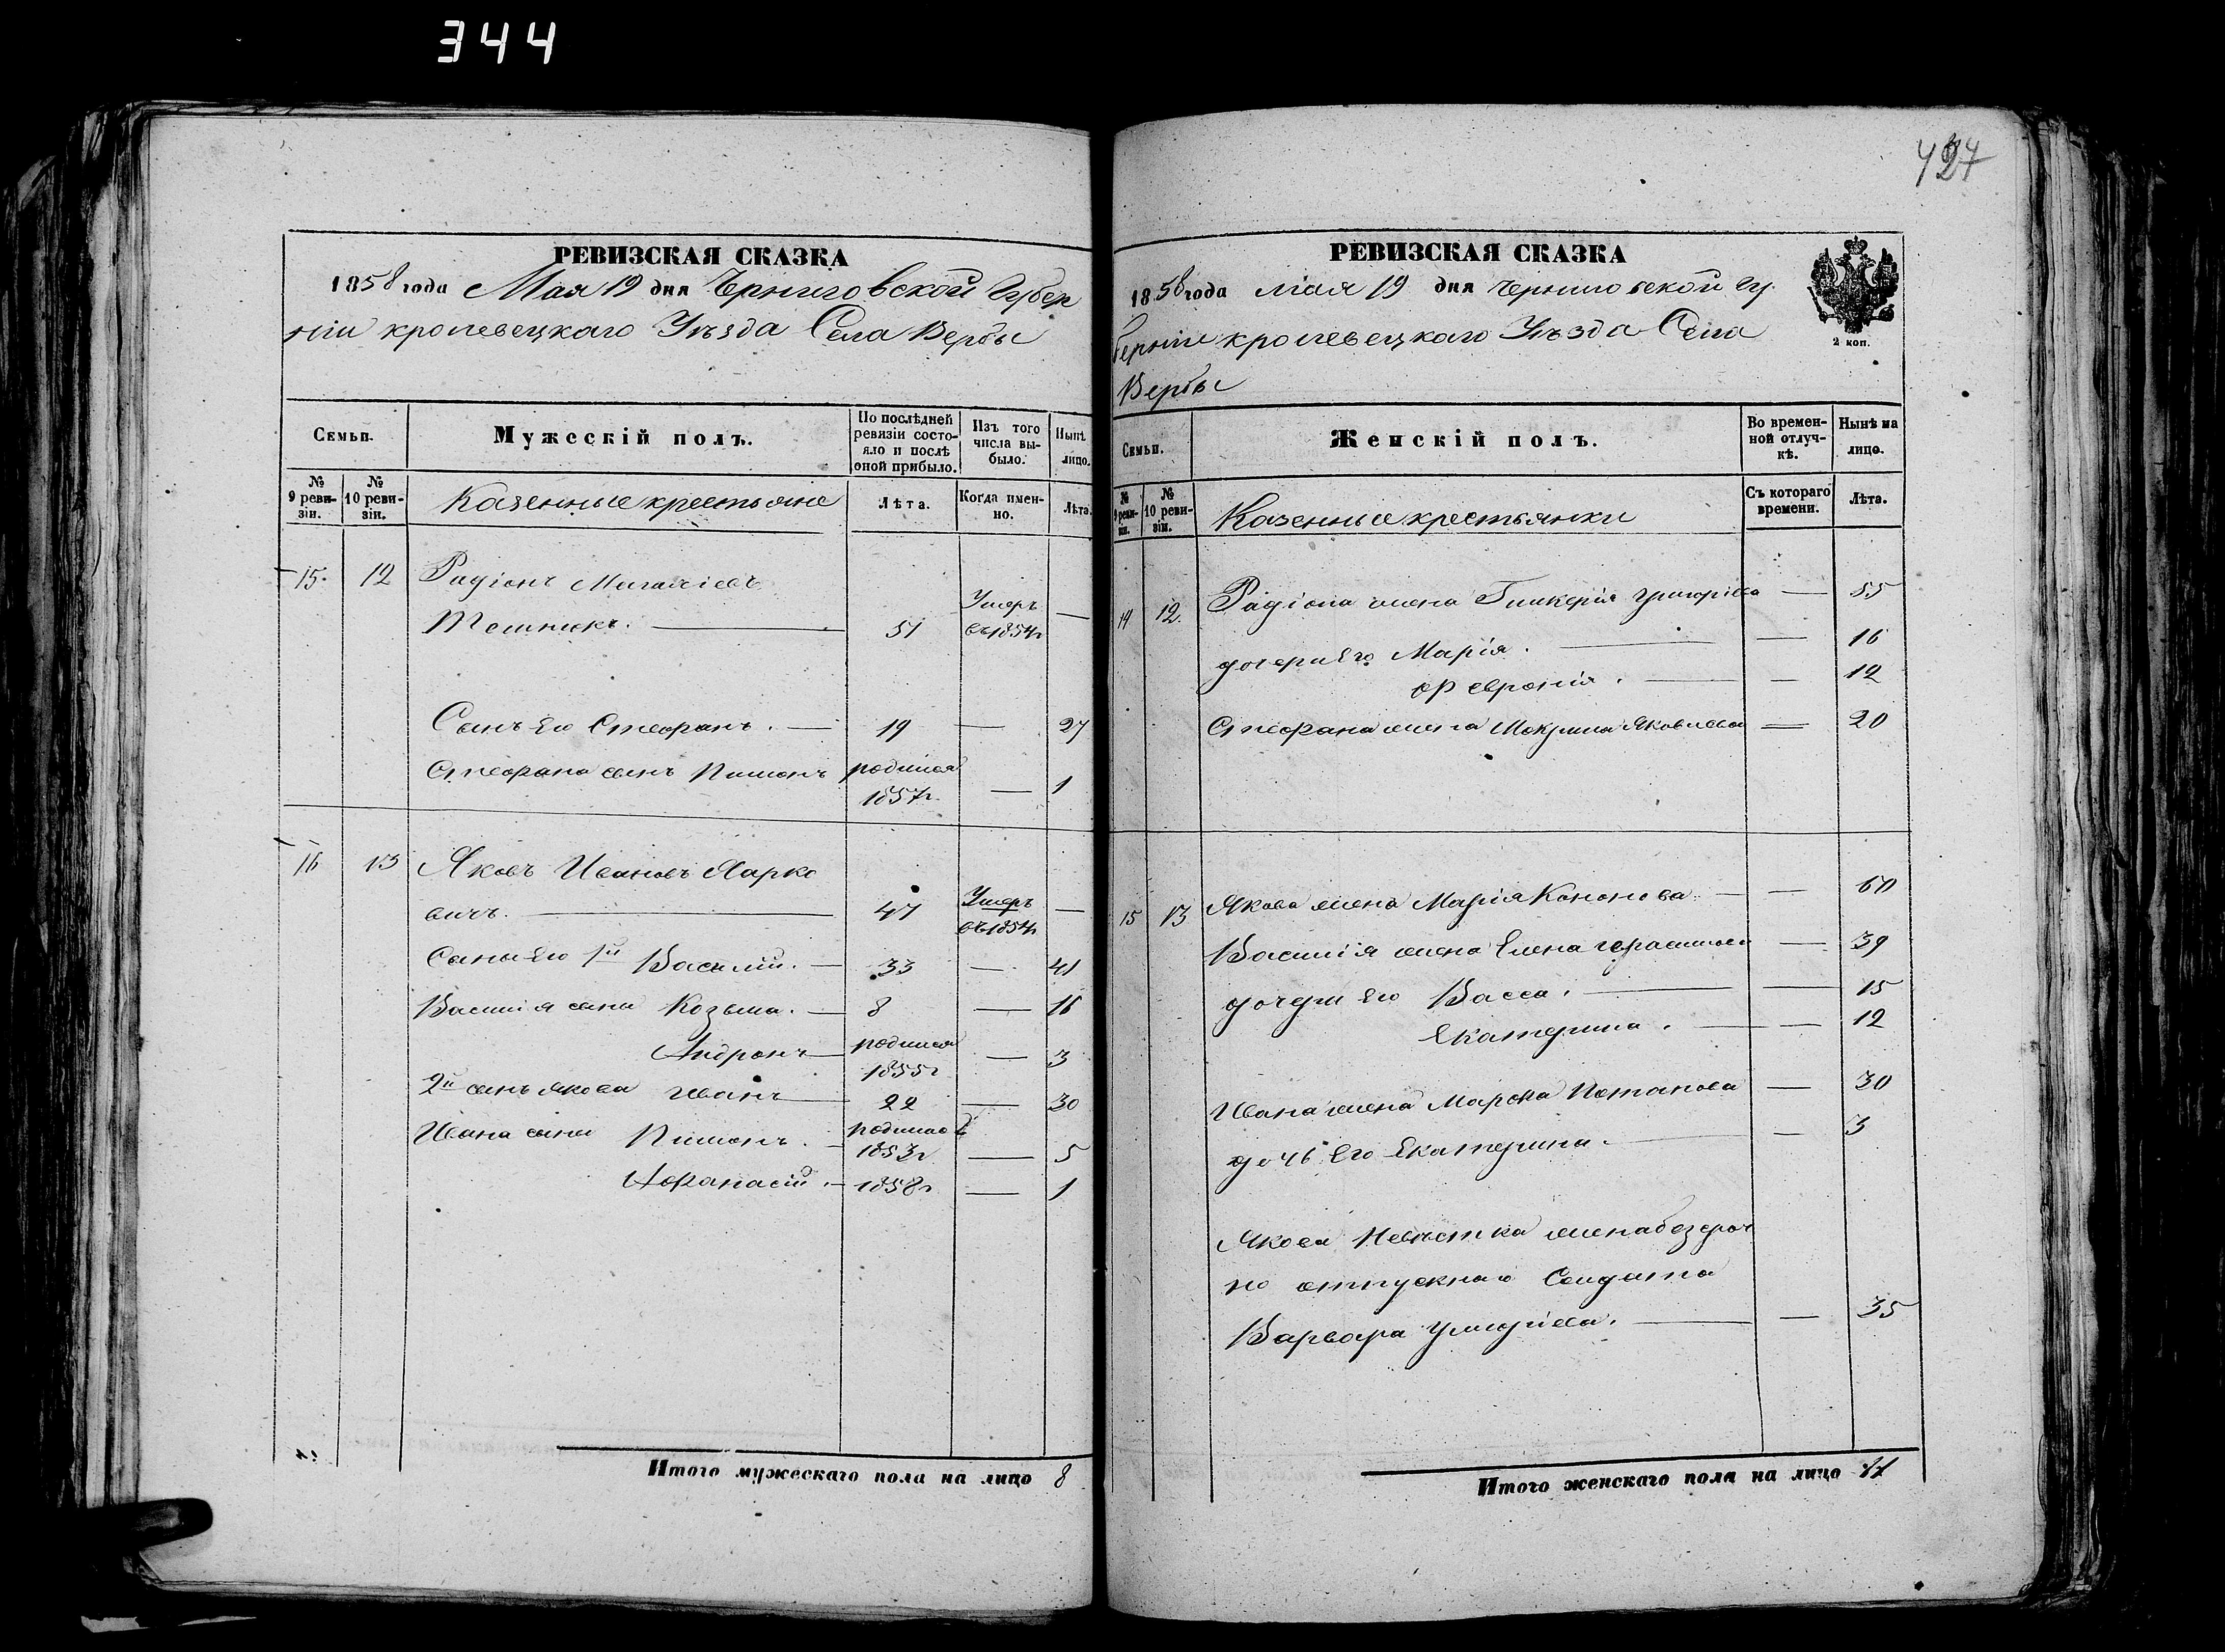 344
427
РЕВИЗСКАЯ СКАЗКА
1858 года Мая 19 дня Черниговской Губер
ніи кролевецкаго Уѣзда Села Вербы
Семьи. Мужескій полъ. По послѣдней ревизіи состояло и послѣ оной прибыло. Изъ того числа выбыло. Нынѣ лицо.
№ 9 ревизіи. № 10 ревизіи. Казенные крестьяне Лѣта. Когда именно. Лѣта.
15. 12 Радіонъ
51 Умеръ въ 1854г —
Сынъ его Стефанъ. — 19 — 27
Стефана сынъ Пименъ родился 1857г. — 1
16 13 Яковъ Ивановъ Марко
вичъ. — 47 Умеръ въ 1854г —
Сыны его 1й Василій. — 33 — 41
Василія сыны Козьма. — 8 — 16
Андронъ — родился 1855г — 3
2й сынъ Якова Иванъ — 22 — 30
Ивана сыны Пименъ. — родился 1853г — 5
Афанасій. — 1858г — 1
Итого мужескаго пола на лицо 8
РЕВИЗСКАЯ СКАЗКА
1858 года мая 19 дня Черниговской Гу
берніи кролевецкаго Уѣзда Села
Вербы
2 коп.
Семьи. Женскій полъ. Во временной отлучкѣ. Нынѣ на лицо.
№ 9 ревизіи. № 10 ревизіи. Казенные крестьянки Съ котораго времени. Лѣта.
14 12. Радіона жена Гликерія Григорієва — 55
дочери его Марія. — — 16
Феврониія. — — 12
Стефана жена Мокрина Яковлева — 20
15 13 Якова жена Марія Кононова — — 60
Василія жена Елена Герасимова — 39
дочери его Васса. — — 15
Екатерина. — — 12
Ивана жена Марфа Потапова — 30
дочь Его Екатерина. — — 3
Якова Невѣстка жена безсроч
но отпускнаго Солдата
Варвара Григоріева. — — 35
Итого женскаго пола на лицо 11